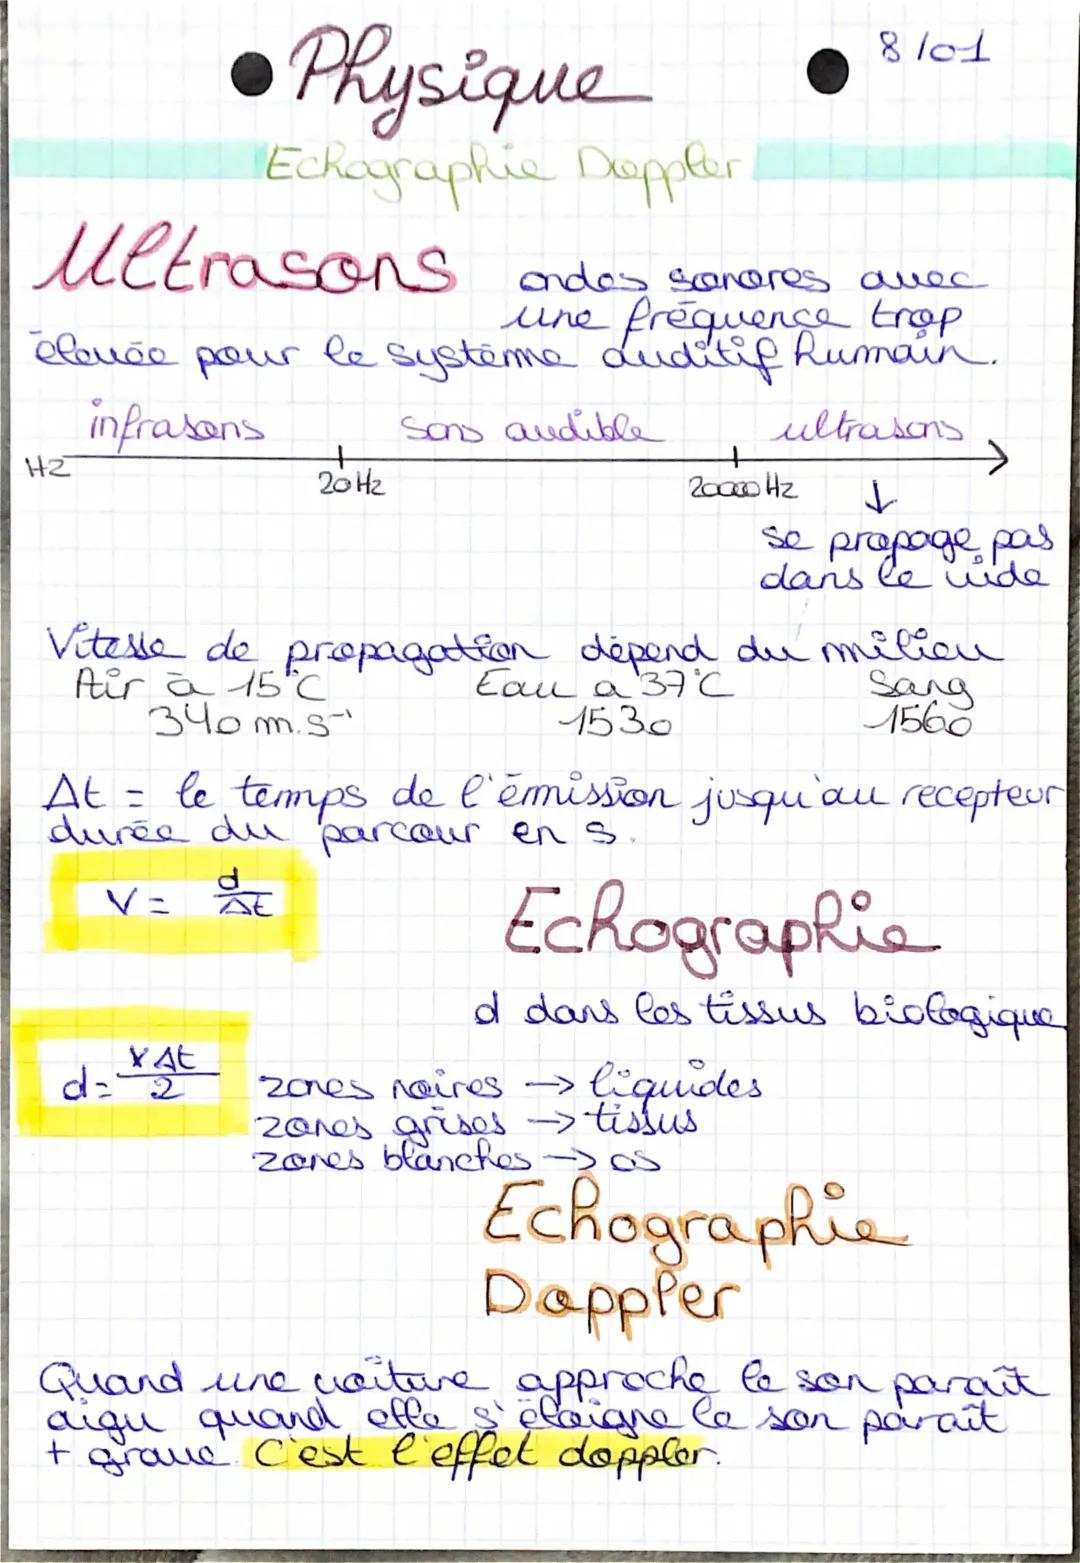 Physique
8/01
Echographie Doppler
Ultrasons ondes sonores avec
une fréquence trop
élevée pour le système auditif humain.
infrasons sons audible ultrasons
Hz
20Hz 20000Hz ↓
se propage pas
dans le vide
Vitesse de propagation dépend du milieu
Air à 15°C Eau a 37°C Sang
340 m.s⁻¹ 1530 1560
Δt = le temps de l'émission jusqu'au recepteur
durée du parcour en s.
V = d/Δt
Echographie
d dans les tissus biologique
d = V Δt / 2
zones noires → liquides
zones grises → tissus
zones blanches → os
Echographie
Doppler
Quand une voiture approche le son paraît
aigu quand elle s'éloigne le son paraît
+ grave. C'est l'effet doppler.